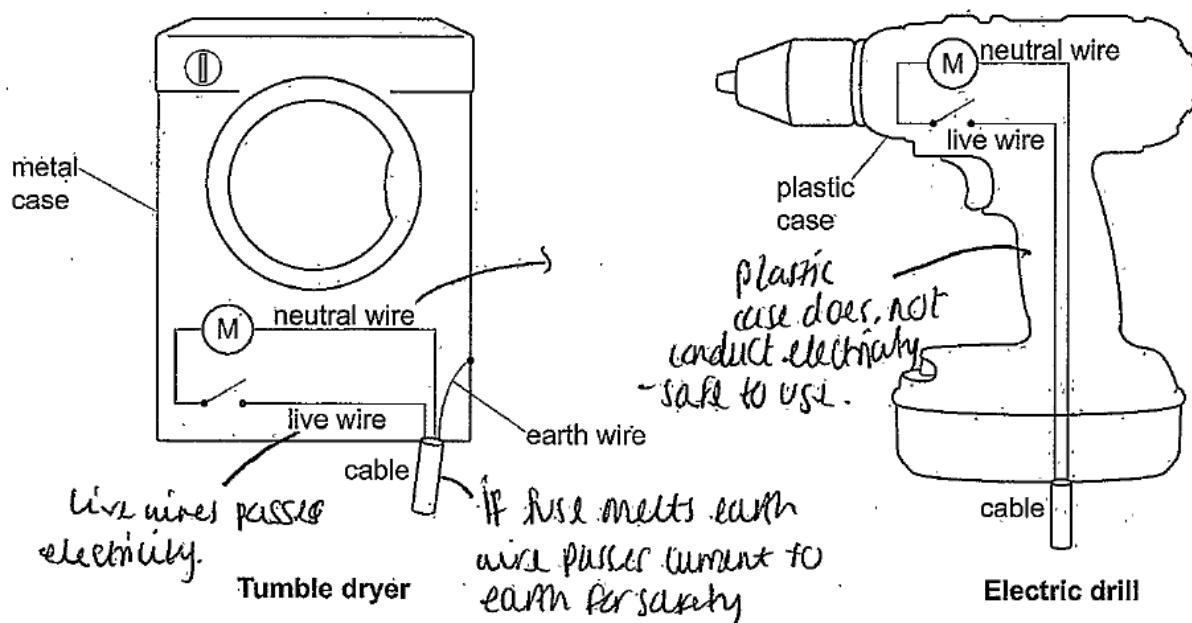 metal
case
M
neutral wire
live wire
earth wire
cable
live wires passes
electricity.
If fuse melts earth
wire passes current to
earth for safety
Tumble dryer
M
neutral wire
live wire
plastic
case
plastic
case does not
conduct electricity
- safe to use.
cable
Electric drill